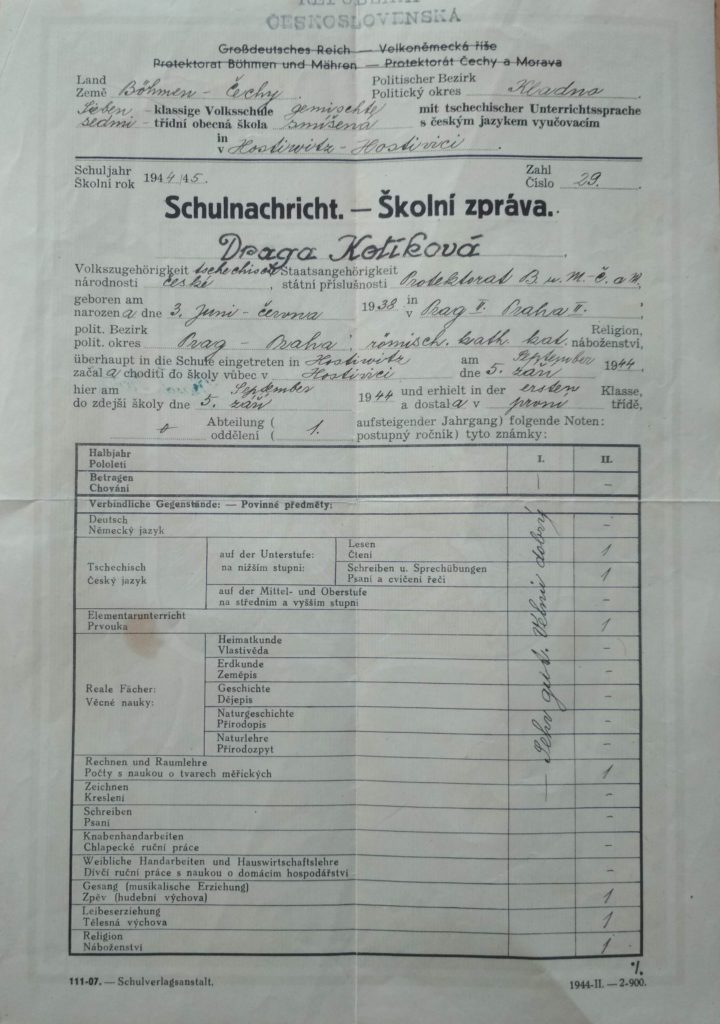 REPUBLIKA
ČESKOSLOVENSKÁ
Großdeutsches Reich — Velkoněmecká říše
Protektorat Böhmen und Mähren — Protektorát Čechy a Morava
Land
Země Böhmen - Čechy
Politischer Bezirk
Politický okres Kladno
Sieben - klassige Volksschule gemischte mit tschechischer Unterrichtssprache
sedmi - třídní obecná škola smíšená s českým jazykem vyučovacím
in
v Hostiwitz - Hostivici
Schuljahr
Školní rok 1944/45.
Zahl
Číslo 29.
Schulnachricht. — Školní zpráva.
Draga Kotíková
Volkszugehörigkeit tschechisch Staatsangehörigkeit
národnosti české, státní příslušnosti Protektorat B. u. M. - Č. a M.
geboren am 3. Juni - června 1938 in Prag II. Praha II.
narozena dne v
polit. Bezirk
polit. okres Prag - Praha, römisch. kath. kat. Religion, náboženství,
überhaupt in die Schule eingetreten in Hostiwitz am September 1944.
začala choditi do školy vůbec v Hostivici dne 5. září
hier am September 1944 und erhielt in der ersten Klasse,
do zdejší školy dne 5. září a dostala v první třídě,
Abteilung ( 1. aufsteigender Jahrgang) folgende Noten:
oddělení ( postupný ročník) tyto známky:
Halbjahr I. II.
Pololetí
Betragen — –
Chování
Verbindliche Gegenstände: — Povinné předměty:
Deutsch –
Německý jazyk
Tschechisch
Český jazyk
auf der Unterstufe:
na nižším stupni:
Lesen 1
Čtení
Schreiben u. Sprechübungen 1
Psaní a cvičení řeči
auf der Mittel- und Oberstufe –
na středním a vyšším stupni
Elementarunterricht 1
Prvouka
Reale Fächer:
Věcné nauky:
Heimatkunde –
Vlastivěda
Erdkunde –
Zeměpis
Geschichte –
Dějepis
Naturgeschichte –
Přírodopis
Naturlehre –
Přírodozpyt
Rechnen und Raumlehre 1
Počty s naukou o tvarech měřických
Zeichnen –
Kreslení
Schreiben –
Psaní
Knabenhandarbeiten –
Chlapecké ruční práce
Weibliche Handarbeiten und Hauswirtschaftslehre –
Dívčí ruční práce s naukou o domácím hospodářství
Gesang (musikalische Erziehung) 1
Zpěv (hudební výchova)
Leibeserziehung 1
Tělesná výchova
Religion 1
Náboženství
— Sehr gut. Velmi dobrý
%
111-07. — Schulverlagsanstalt.
1944-II. — 2-900.